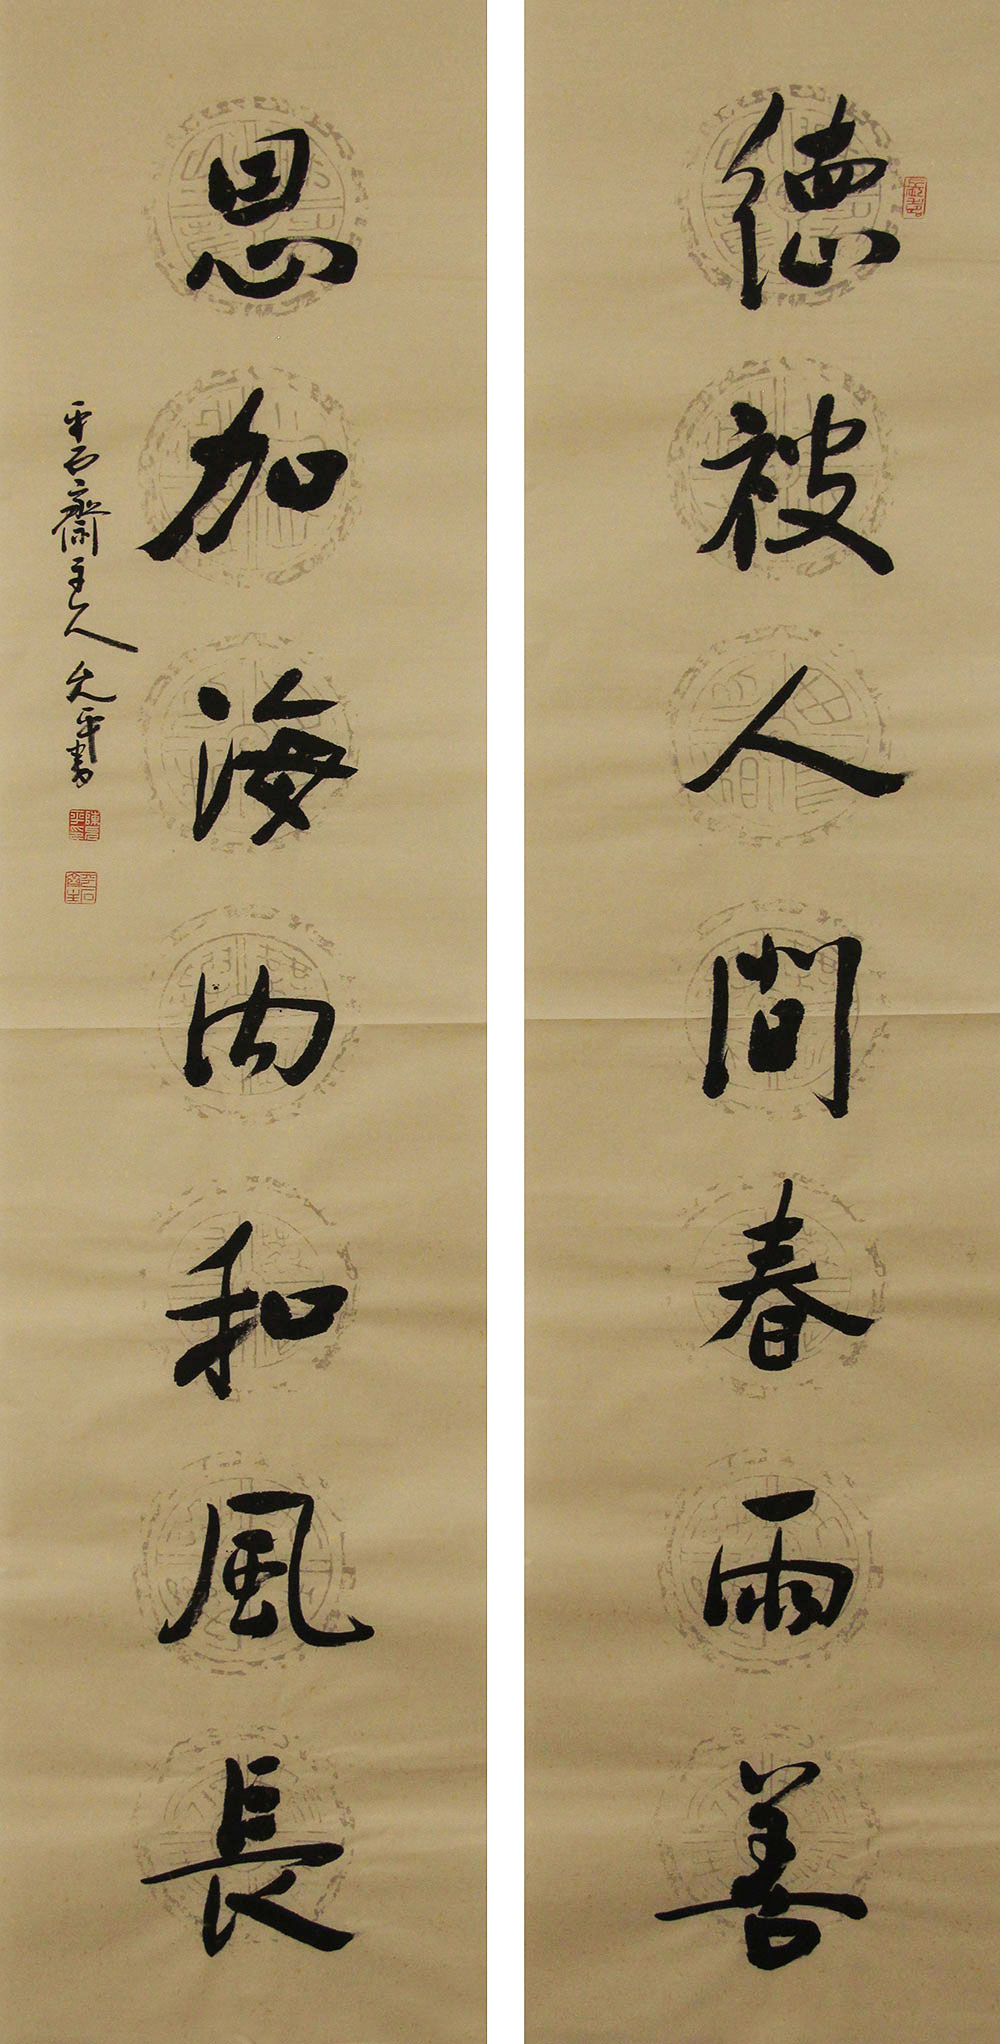 德被人間春雨善
恩加海內和風長
平石齋主人允平書